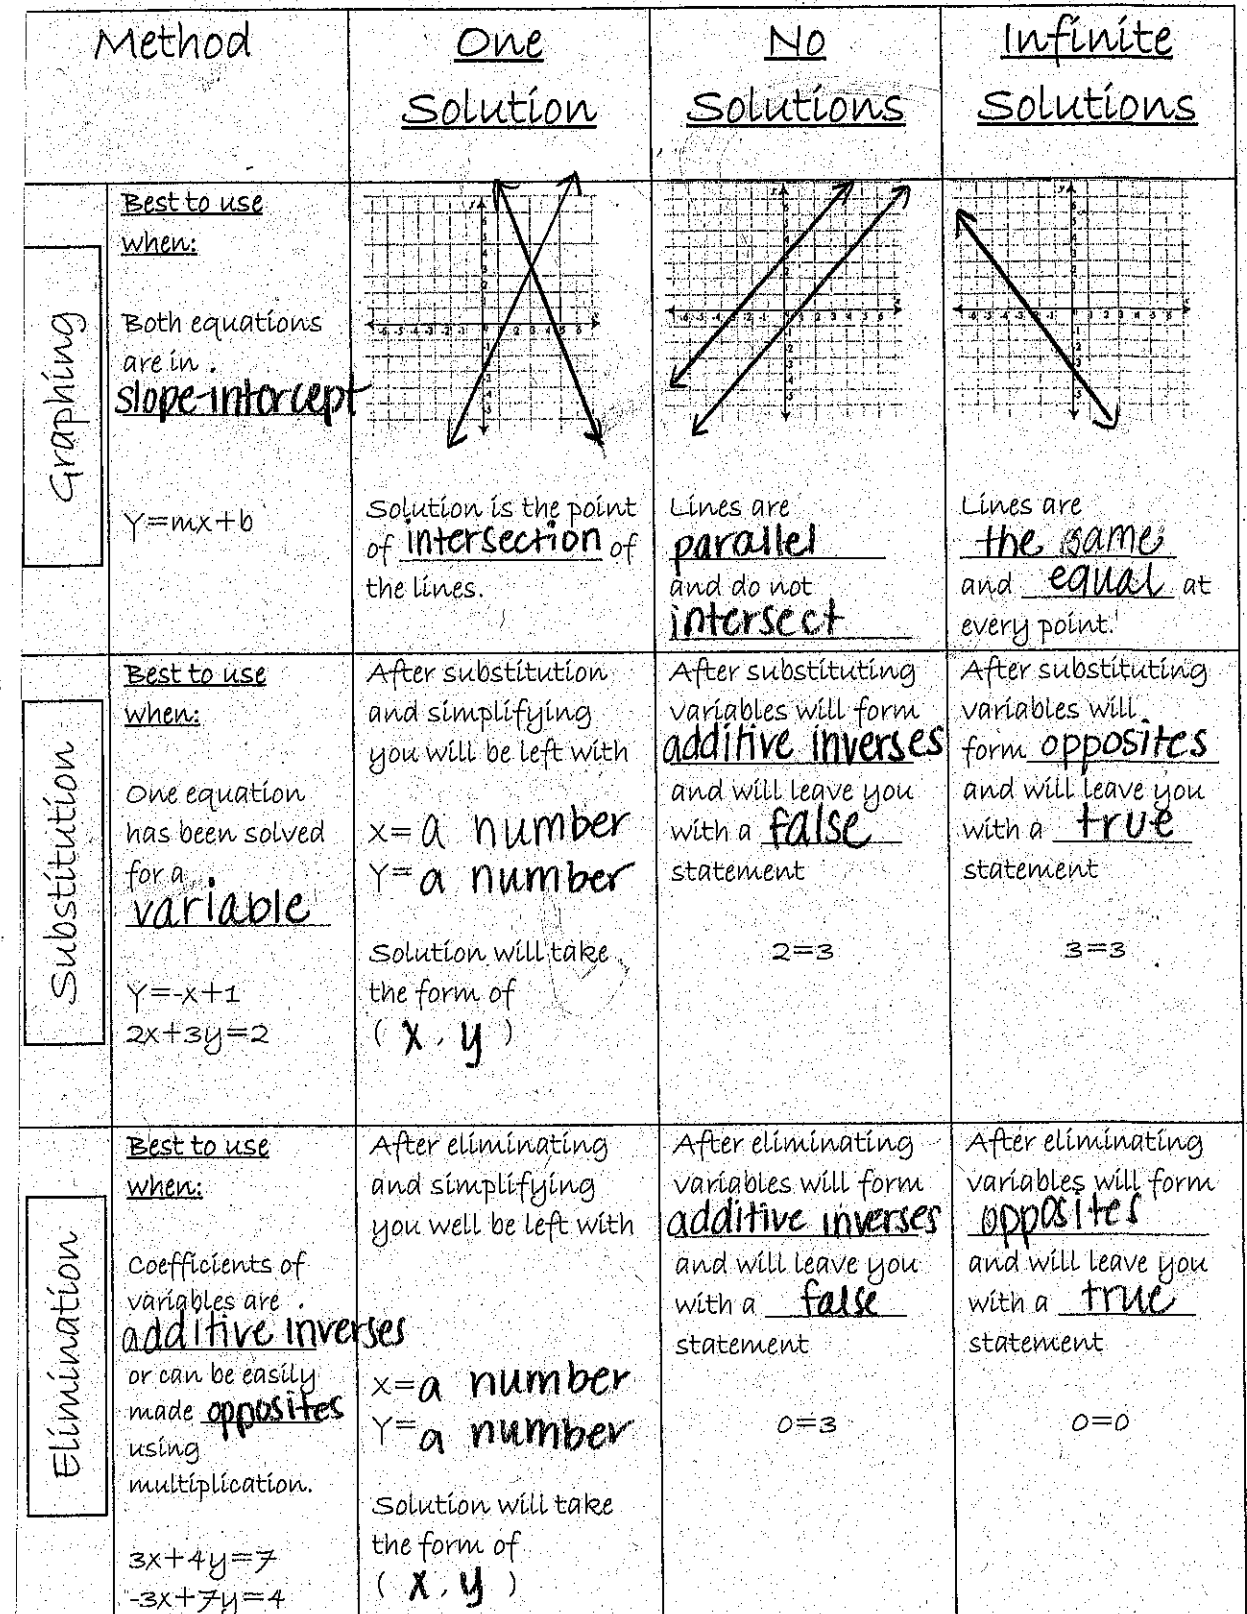 Method
One
Solution
No
Solutions
Infinite
Solutions
Graphing
Best to use
when:
Both equations
are in
slope-intercept
Y=mx+b
Solution is the point
of intersection of
the lines.
Lines are
parallel
and do not
intersect
Lines are
the same
and equal at
every point.
Substitution
Best to use
when:
One equation
has been solved
for a
variable
Y=-x+1
2x+3y=2
After substitution
and simplifying
you will be left with
x= a number
Y= a number
Solution will take
the form of
( x , y )
After substituting
variables will form
additive inverses
and will leave you
with a false
statement
2=3
After substituting
variables will
form opposites
and will leave you
with a true
statement
3=3
Elimination
Best to use
when:
Coefficients of
variables are
additive inverses
or can be easily
made opposites
using
multiplication.
3x+4y=7
-3x+7y=4
After eliminating
and simplifying
you well be left with
x= a number
Y= a number
Solution will take
the form of
( x , y )
After eliminating
variables will form
additive inverses
and will leave you
with a false
statement
0=3
After eliminating
variables will form
opposites
and will leave you
with a true
statement
0=0